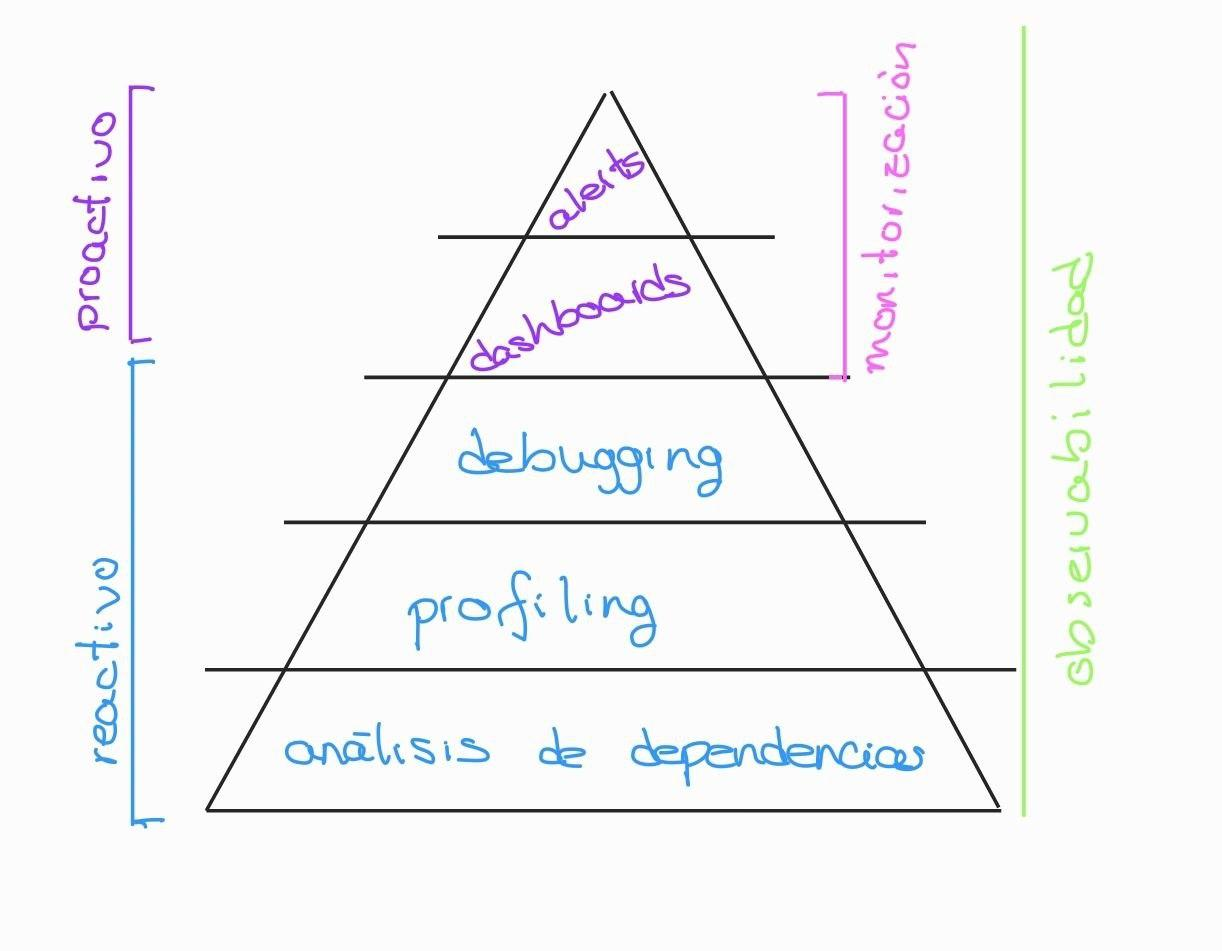 proactivo
reactivo
alerts
dashboards
debugging
profiling
análisis de dependencias
monitorización
observabilidad